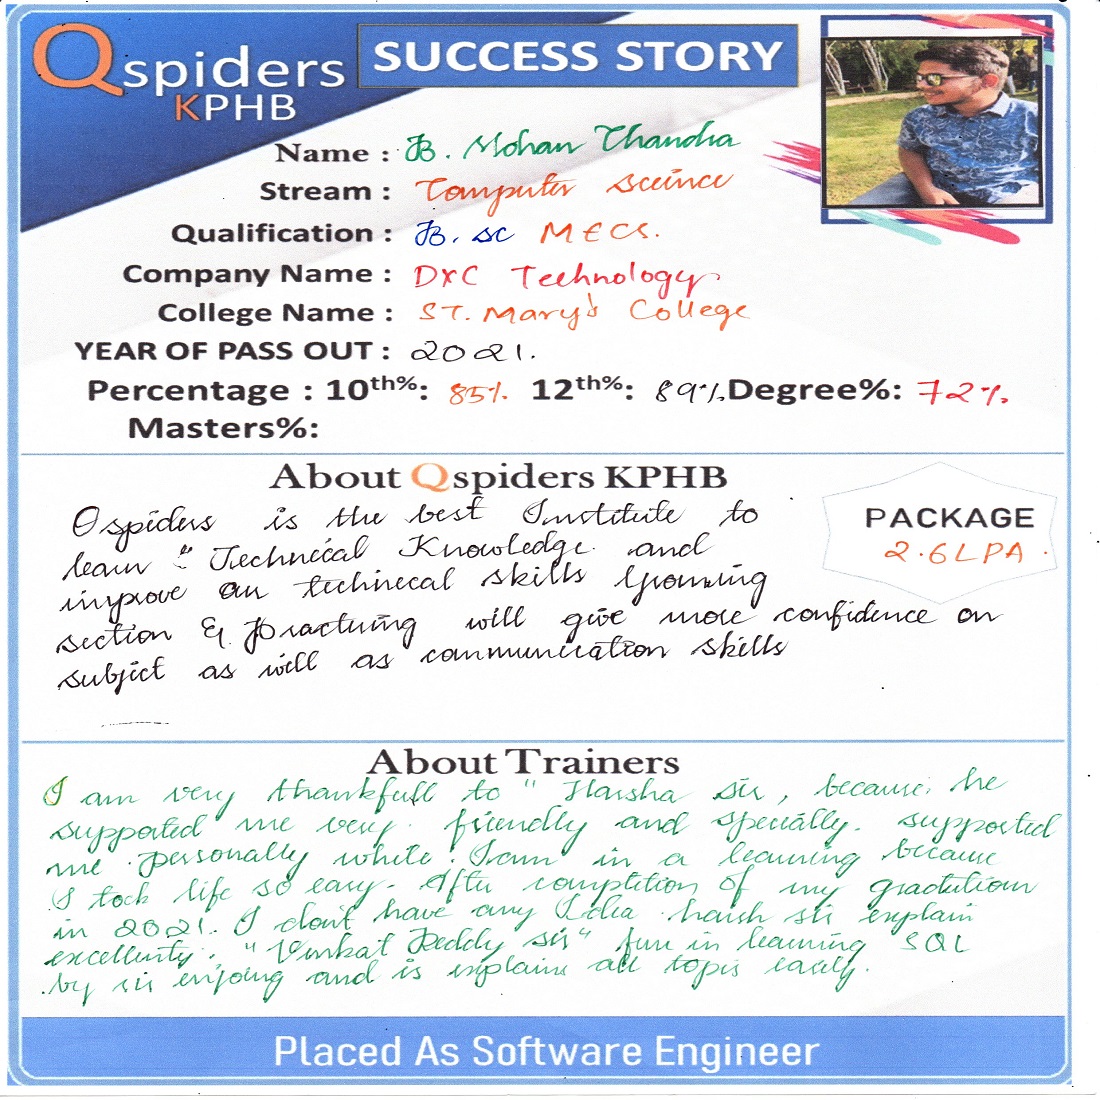 Qspiders
KPHB
SUCCESS STORY
Name : B. Mohan Chandra
Stream : Computer Sceince
Qualification : B. sc MECS.
Company Name : DXC Technology
College Name : ST. Mary's College
YEAR OF PASS OUT : 2021.
Percentage : 10th%: 85% 12th%: 89% Degree%: 72%
Masters%:
About Qspiders KPHB
PACKAGE
2.6LPA.
Qspiders is the best Institute to
learn "Technical Knowledge and
improve our techinecal skills Grooming
section & Practicing will give more confidence on
subject as will as communication skills
About Trainers
I am very thankfull to "Harsha sir, because he
supported me very friendly and specially. supported
me personally while I am in a learning because
I took life so easy. After completion of my gradution
in 2021. I don't have any Idea harsh sir explain
excellently. "Venkat Reddy sir" fun in learning SQL
by sir enjoing and is explains all topis easily.
Placed As Software Engineer